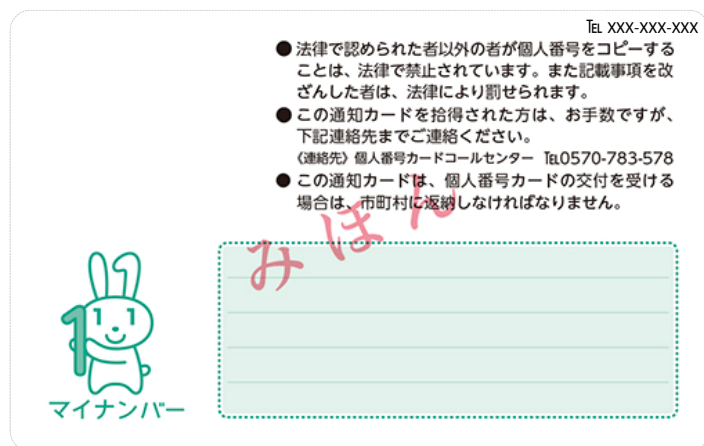 ℡ XXX-XXX-XXX
● 法律で認められた者以外の者が個人番号をコピーする
ことは、法律で禁止されています。また記載事項を改
ざんした者は、法律により罰せられます。
● この通知カードを拾得された方は、お手数ですが、
下記連絡先までご連絡ください。
《連絡先》個人番号カードコールセンター ℡0570-783-578
● この通知カードは、個人番号カードの交付を受ける
場合は、市町村に返納しなければなりません。
みほん
1
マイナンバー